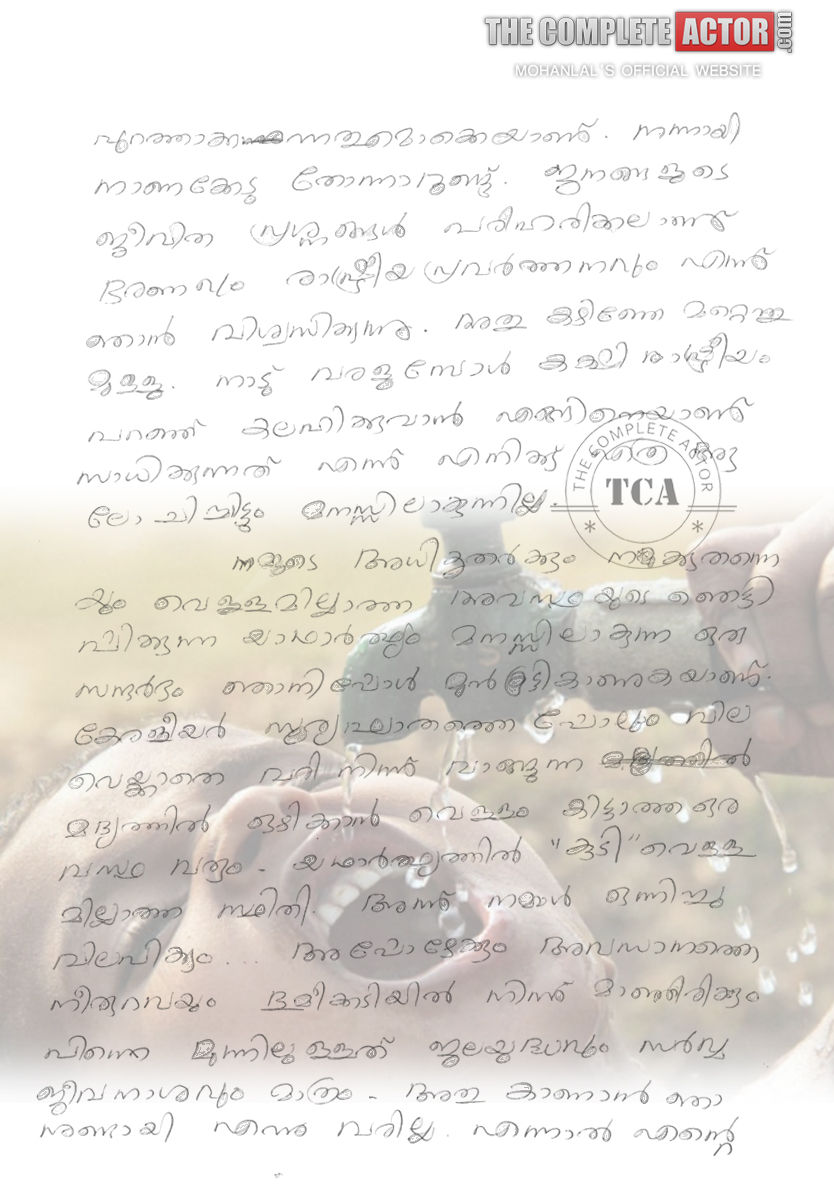 THE COMPLETE ACTOR .com
MOHANLAL'S OFFICIAL WEBSITE
നന്നായി
നാണക്കേടു തോന്നാറുണ്ട്. ജനങ്ങളുടെ
ജീവിത പ്രശ്നങ്ങൾ പരിഹരിക്കലാണ്
ഭരണവും രാഷ്ട്രീയ പ്രവർത്തനവും എന്ന്
ഞാൻ വിശ്വസിക്കുന്നു. അതു കഴിഞ്ഞേ മറ്റെന്തു
മുള്ളൂ. നാട്ട് വരളുമ്പോൾ കക്ഷി രാഷ്ട്രീയം
പറഞ്ഞ് കലഹിക്കുവാൻ എങ്ങിനെയാണ്
സാധിക്കുന്നത് എന്ന് എനിക്ക് എത്ര ആ
ലോചിച്ചിട്ടും മനസ്സിലാകുന്നില്ല.
THE COMPLETE ACTOR
TCA
നമ്മുടെ അധികൃതർക്കും നമുക്കുതന്നെ
യും വെള്ളമില്ലാത്ത അവസ്ഥയുടെ ഞെട്ടി
പ്പിക്കുന്ന യാഥാർത്ഥ്യം മനസ്സിലാകുന്ന ഒരു
സന്ദർഭം ഞാനിപ്പോൾ മുൻകൂട്ടികാണുകയാണ്.
കേരളീയർ സൂര്യാഘാതത്തെ പോലും വില
വെയ്ക്കാതെ വരി നിന്ന് വാങ്ങുന്ന
മദ്യത്തിൽ ഒഴിക്കാൻ വെള്ളം കിട്ടാത്ത ഒര
വസ്ഥ വരും. യഥാർത്ഥത്തിൽ "കുടി" വെള്ള
മില്ലാത്ത സ്ഥിതി. അന്ന് നമ്മൾ ഒന്നിച്ചു
വിലപിക്കും... അപ്പോഴേക്കും അവസാനത്തെ
നീരുറവയും ഭൂമിക്കടിയിൽ നിന്ന് മാഞ്ഞിരിക്കും
പിന്നെ മുന്നിലുള്ളത് ജലയുദ്ധവും സർവ്വ
ജീവനാശവും മാത്രം. അതു കാണാൻ ഞാ
നുണ്ടായി എന്നു വരില്ല. എന്നാൽ എന്റെ